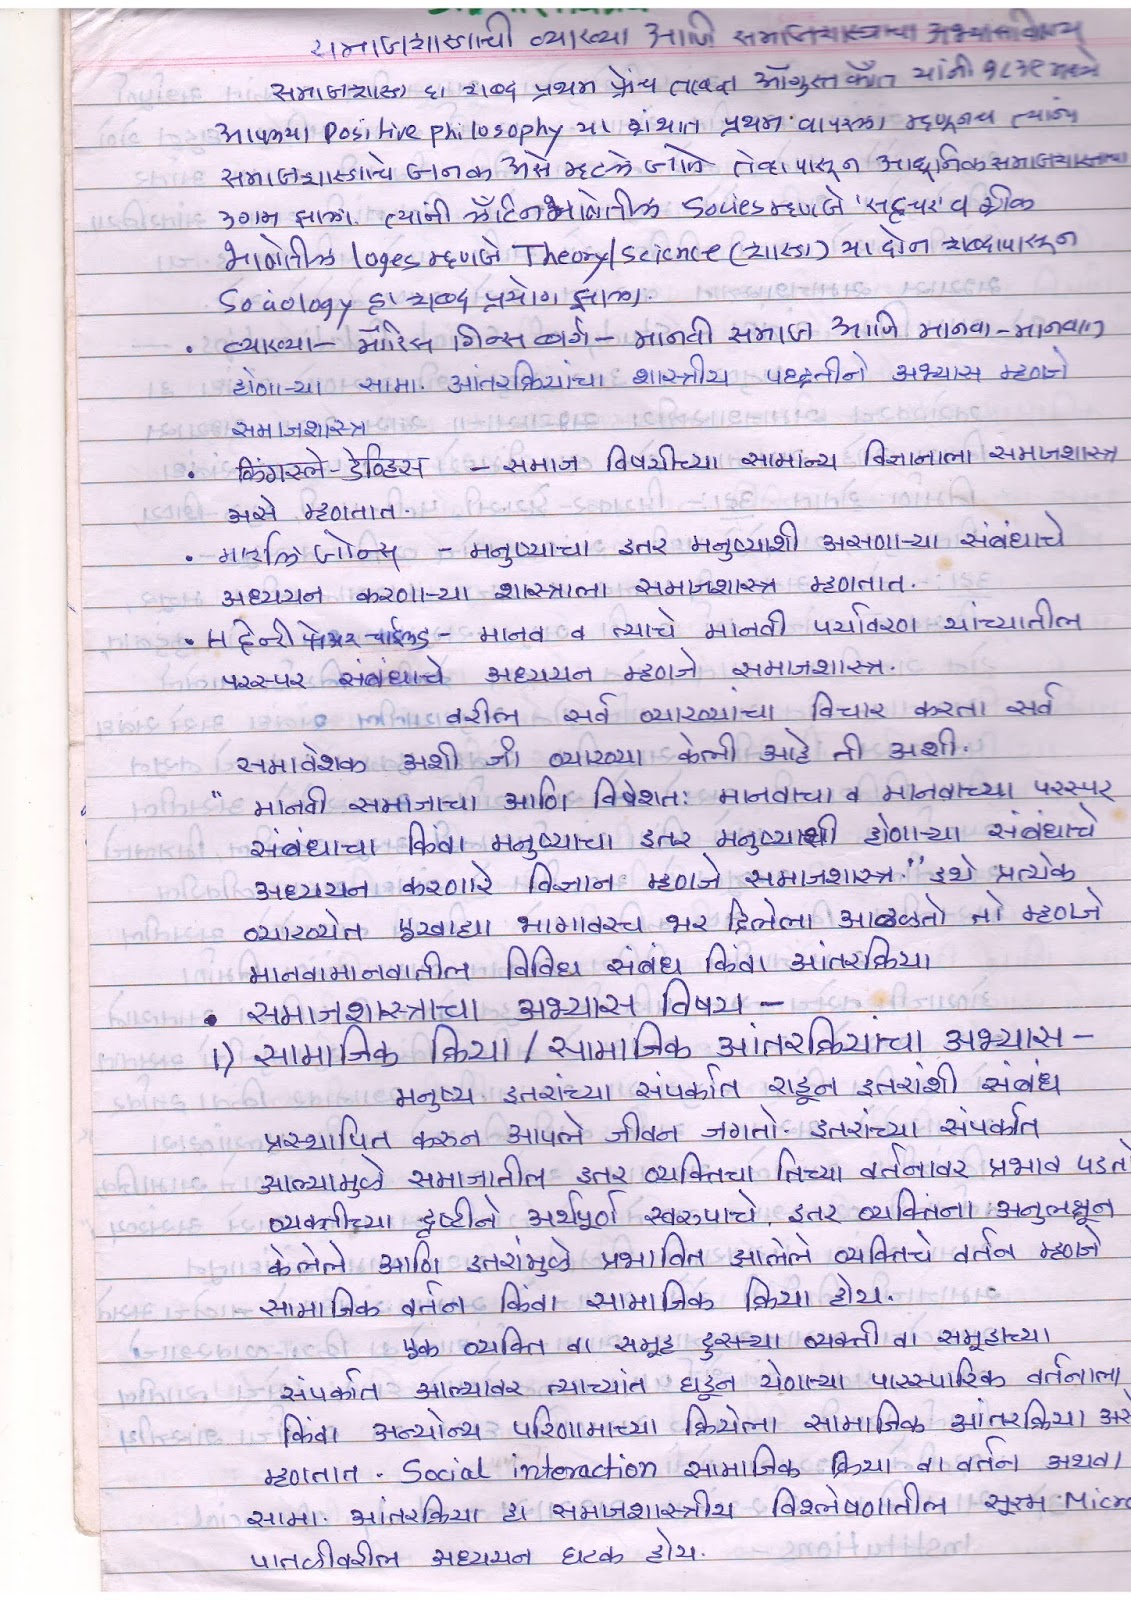 समाजशास्त्राची व्याख्या आणि समाजशास्त्राचा अभ्यासविषय
समाजशास्त्र हा शब्द प्रथम फ्रेंच तत्वज्ञ ऑगुस्त कॉंत यांनी १८३९ मध्ये
आपल्या Positive philosophy या ग्रंथात प्रथम वापरला म्हणूनच त्यांना
समाजशास्त्राचे जनक असे म्हटले जाते तेव्हा पासून आधुनिक समाजशास्त्राचा
उगम झाला. त्यांनी लॅटिन भाषेतील Socies म्हणजे 'सहचर' व ग्रीक
भाषेतील loges म्हणजे Theory/Science (शास्त्र) या दोन शब्दापासून
Sociology हा शब्द प्रयोग झाला.
• व्याख्या - मॉरिस गिन्स बर्ग - मानवी समाज आणि मानवा - मानवात
होणाऱ्या सामा. आंतरक्रियांचा शास्त्रीय पध्दतीने अभ्यास म्हणजे
समाजशास्त्र
• किंगस्ले - डेव्हिस - समाज विषयीच्या सामान्य विज्ञानाला समाजशास्त्र
असे म्हणतात.
• मार्शल जोन्स् - मनुष्याचा इतर मनुष्याशी असणाऱ्या संबंधाचे
अध्ययन करणाऱ्या शास्त्राला समाजशास्त्र म्हणतात.
• H हेन्री फेअर चाईल्ड - मानव व त्याचे मानवी पर्यावरण यांच्यातील
परस्पर संबंधाचे अध्ययन म्हणजे समाजशास्त्र.
वरील सर्व व्याख्यांचा विचार करता सर्व
समावेशक अशी जी व्याख्या केली आहे ती अशी.
" मानवी समाजाचा आणि विषेशतः मानवाचा व मानवाच्या परस्पर
संबंधाचा किंवा मनुष्याचा इतर मनुष्याशी होणाऱ्या संबंधाचे
अध्ययन करणारे विज्ञान म्हणजे समाजशास्त्र." इथे प्रत्येक
व्याख्येत एखाद्या भागावरच भर दिलेला आढळतो तो म्हणजे
मानवामानवातील विविध संबंध किंवा आंतरक्रिया
• समाजशास्त्राचा अभ्यास विषय -
1) सामाजिक क्रिया / सामाजिक आंतरक्रियांचा अभ्यास -
मनुष्य इतरांच्या संपर्कात राहून इतरांशी संबंध
प्रस्थापित करुन आपले जीवन जगतो. इतरांच्या संपर्कात
आल्यामुळे समाजातील इतर व्यक्तिचा तिच्या वर्तनावर प्रभाव पडतो
व्यक्तीच्या दृष्टीने अर्थपूर्ण स्वरुपाचे, इतर व्यक्तिंना अनुलक्षून
केलेले आणि इतरांमुळे प्रभावित झालेले व्यक्तिचे वर्तन म्हणजे
सामाजिक वर्तन किंवा सामाजिक क्रिया होय.
एक व्यक्ति वा समूह दुसऱ्या व्यक्ती वा समूहाच्या
संपर्कात आल्यावर त्याच्यांत घडून येणाऱ्या पारस्पारिक वर्तनाला
किंवा अन्योन्य परिणामाच्या क्रियेला सामाजिक आंतरक्रिया असे
म्हणतात. Social interaction सामाजिक क्रिया वा वर्तन अथवा
सामा. आंतरक्रिया हा समाजशास्त्रीय विश्लेषणातील सूक्ष्म Micro
पातळीवरील अध्ययन घटक होय.